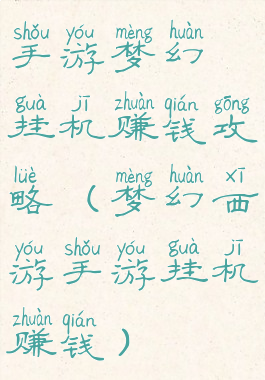 shǒu yóu mèng huàn
手游梦幻
guà jī zhuàn qián gōng
挂机赚钱攻
lüè mèng huàn xī
略（梦幻西
yóu shǒu yóu guà jī
游手游挂机
zhuàn qián
赚钱）